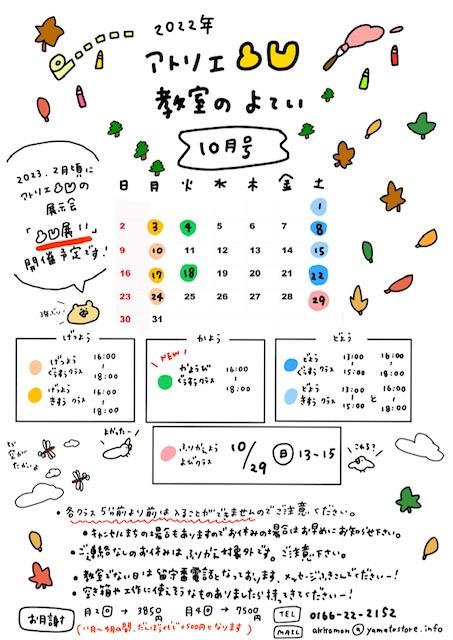 2022年
アトリエ凸凹
教室のよてい
10月号
2023.2月頃に
アトリエ凸凹の
展示会
「凸凹展!!」
開催予定です!
3年ぶり!
日 月 火 水 木 金 土
1
2 3 4 5 6 7 8
9 10 11 12 13 14 15
16 17 18 19 20 21 22
23 24 25 26 27 28 29
30 31
げつよう
げつよう ぐうすうクラス 16:00 - 18:00
げつよう きすうクラス 16:00 - 18:00
かよう
NEW
かようび ぐうすうクラス 16:00 - 18:00
どよう
どよう ぐうすうクラス 13:00 - 15:00 16:00 - 18:00
どよう きすうクラス 13:00 - 15:00 と 16:00 - 18:00
よかったー
ふりかえよう よびクラス 10/29 (日) 13-15
これる?
・各クラス5分前より前は入ることができませんのでご注意ください。
・キャンセルまちの場合もありますのでお休みの場合はお早めにお知らせ下さい。
・ご連絡なしのお休みはふりかえ対象外です。ご注意下さい。
・教室でない日は留守番電話となっております。メッセージふきこんでくださいー!
・空き箱や工作に使えそうなものありましたら持ってきてくださいー!
お月謝 月2回→3850円 月4回→7500円
(11月〜4月の間、だんぼう代で+500円となります)
TEL 0166-22-2152
MAIL akitomon@yamafostore.info